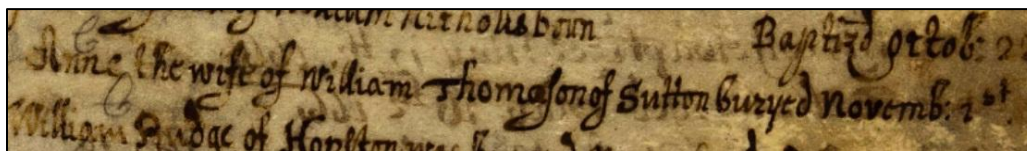 William Nicholls boun Baptizd Octob: 2
Anne the wife of William Thomason of Sutton buryed Novemb: 1st
William Rudge of Hopston